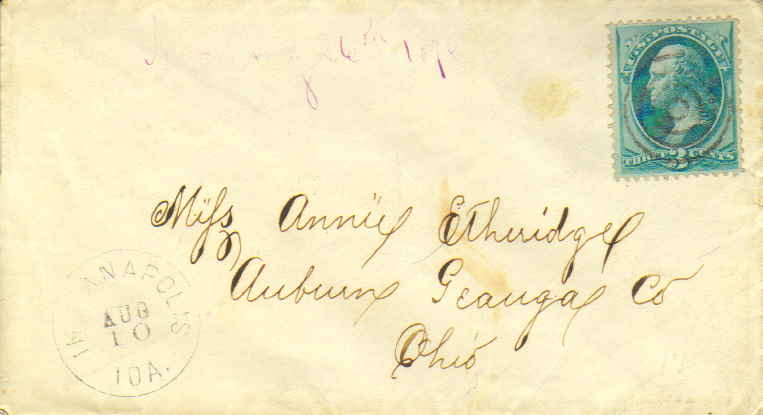 U.S. POSTAGE
THREE 3 CENTS
Miss Annie Etheridge
Auburn Geauga Co
Ohio
INDIANAPOLIS
AUG
10
IDA.